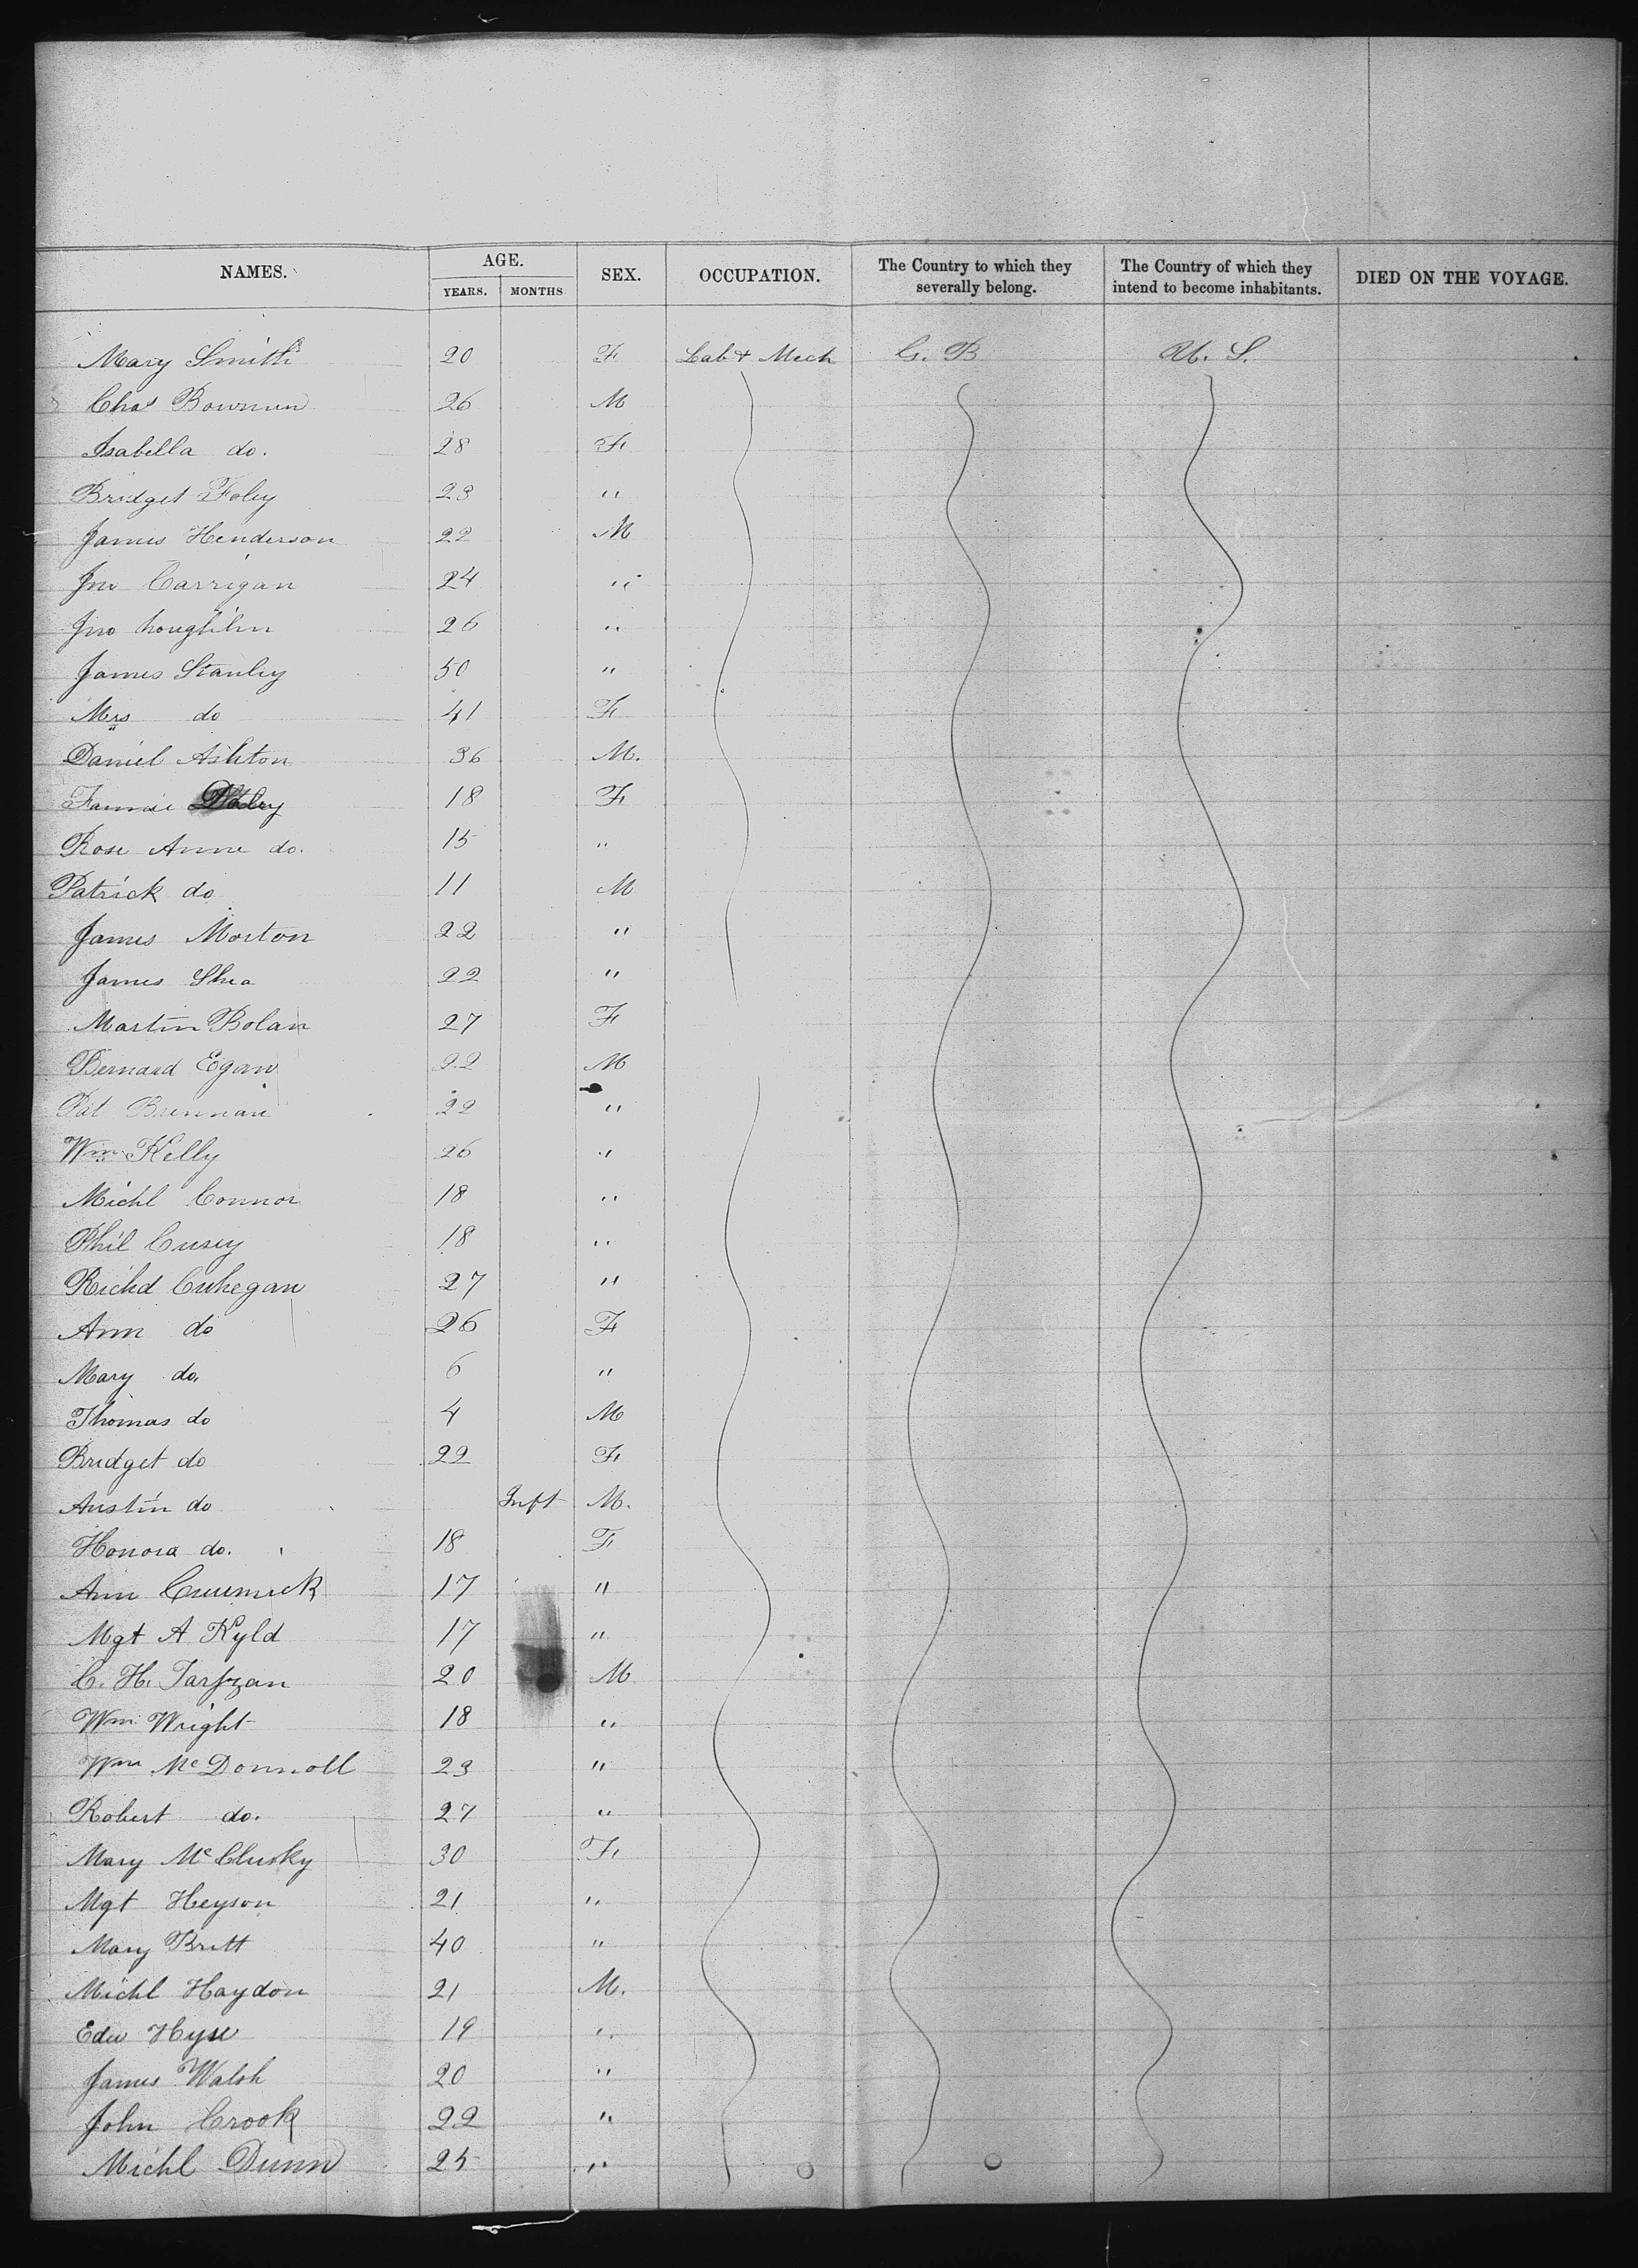 NAMES. AGE. SEX. OCCUPATION. The Country to which they severally belong. The Country of which they intend to become inhabitants. DIED ON THE VOYAGE.
YEARS. MONTHS
Mary Smith 20 F Lab & Mech G. B. U. S.
Chas Bowman 26 M
Isabella do. 28 F
Bridget Foley 23 "
James Henderson 22 M
Jno Carrigan 24 "
Jno 26 "
James Stanley 50 "
Mrs do 41 F
Daniel Ashton 36 M.
Fannie Daley 18 F
Rose Anne do. 15 "
Patrick do 11 M
James Morton 22 "
James Shea 22 "
Martin Bolan 27 F
Bernard Egan 22 M
Pat Brennan 22 "
Wm Kelly 26 "
Michl Connor 18 "
Phil Cusey 18 "
Richd Cuhegan 27 "
Ann do 26 F
Mary do. 6 "
Thomas do 4 M
Bridget do 22 F
Austin do Inft M.
Honora do. 18 F
Ann 17 "
Mgt A Kyld 17 "
C. H. 20 M
Wm Wright 18 "
Wm McDonnoll 23 "
Robert do. 27 "
Mary McClusky 30 F
Mgt Heyson 21 "
Mary Britt 40 "
Michl Haydon 21 M.
Edw Hyse 19 "
James Walsh 20 "
John Crook 22 "
Michl Dunn 25 "